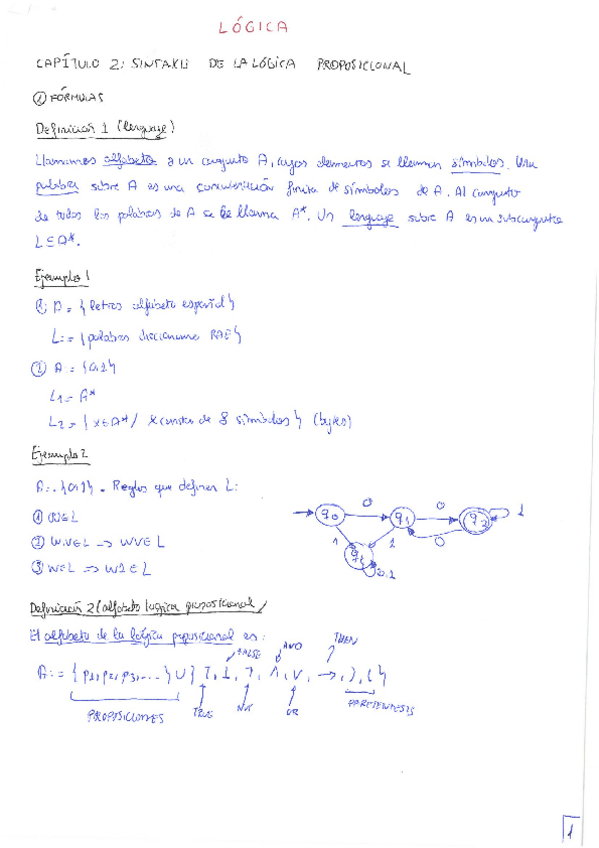 LÓGICA
CAPÍTULO 2: SINTAXIS DE LA LÓGICA PROPOSICIONAL
① FÓRMULAS
Definición 1 (lenguaje)
Llamamos alfabeto a un conjunto A, cuyos elementos se llaman símbolos. Una
palabra sobre A es una concatenación finita de símbolos de A. Al conjunto
de todas las palabras de A se le llama A*. Un lenguaje sobre A es un subconjunto
L⊆A*.
Ejemplo 1
① A = {letras alfabeto español}
L:= {palabras diccionario RAE}
② A := {0,1}
L₁ = A*
L₂ = {x∈A* / x consta de 8 símbolos} (bytes)
Ejemplo 2
A:= {0,1}. Reglas que definen L:
① 00∈L
② W,V∈L → WV∈L
③ W∈L => W1∈L
q0 0 q1 0 q2 1
1 1 0
q3 0,1
Definición 2 (alfabeto lógica proposicional)
El alfabeto de la lógica proposicional es:
FALSE AND THEN
A:= {p1,p2,p3,...} ∪ {⊤,⊥,¬,∧,∨,→,),(}
PROPOSICIONES TRUE NOT OR PARENTESIS
1